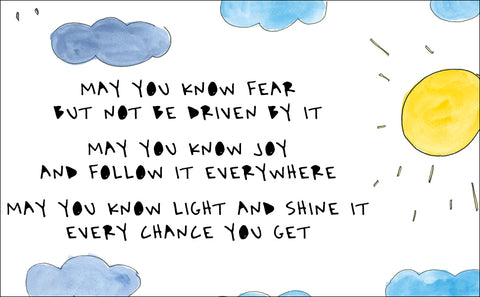 MAY YOU KNOW FEAR
BUT NOT BE DRIVEN BY IT
MAY YOU KNOW JOY
AND FOLLOW IT EVERYWHERE
MAY YOU KNOW LIGHT AND SHINE IT
EVERY CHANCE YOU GET